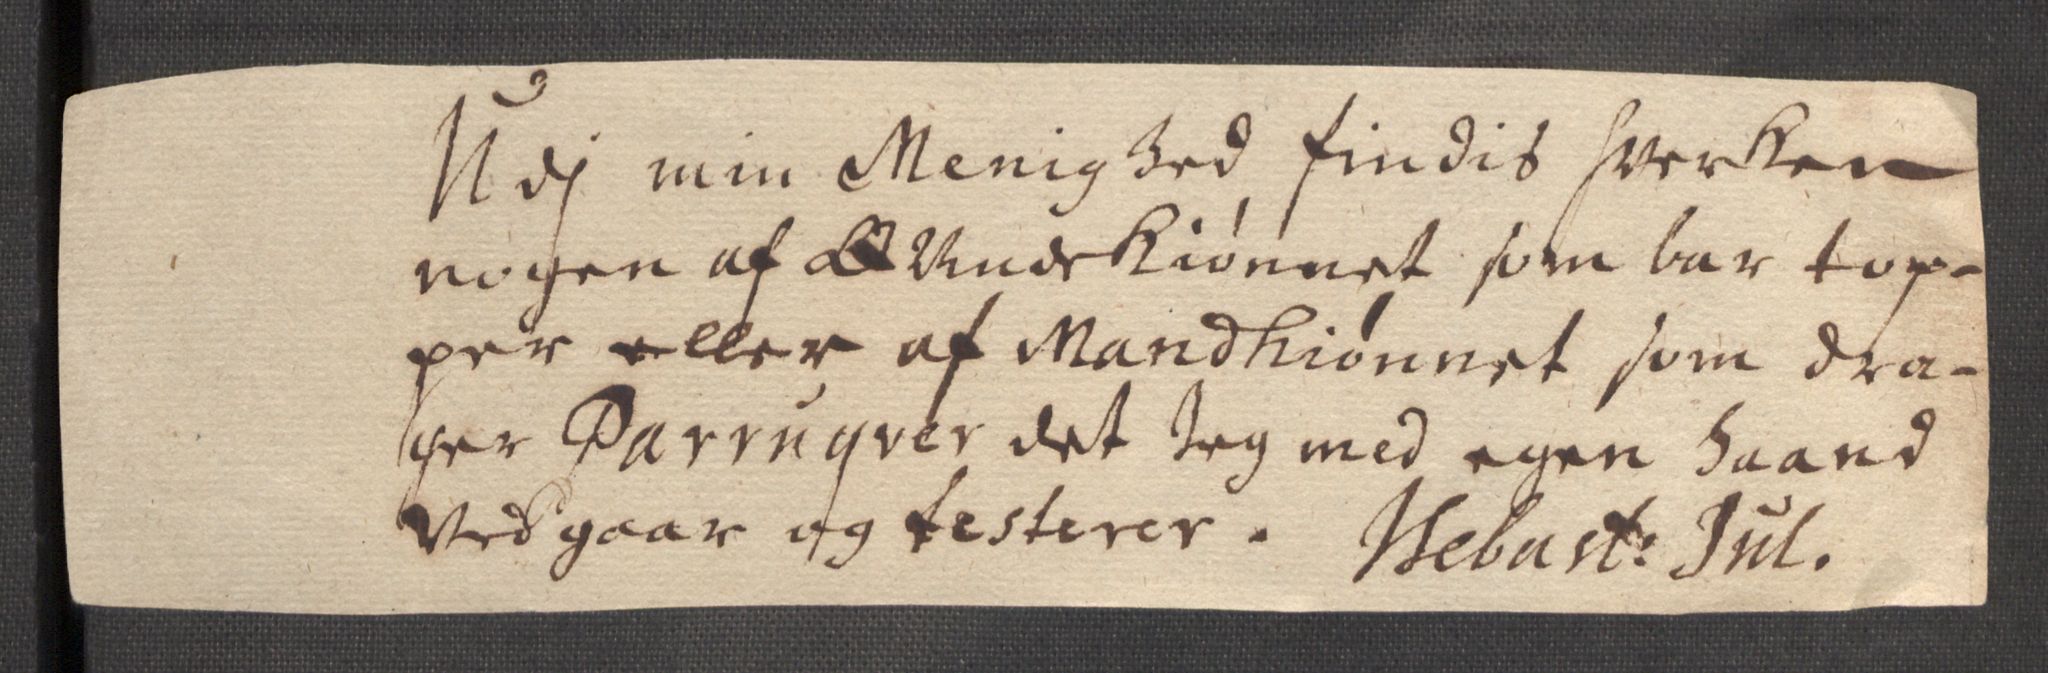 Udj min Menighed findis hverken
nogen af Qvindekiønnet som bar top-
per eller af Mandkiønnet som dra-
ger Parruqver det Jeg med egen haand
Vedgaar og testerer. Sebast: Jul.